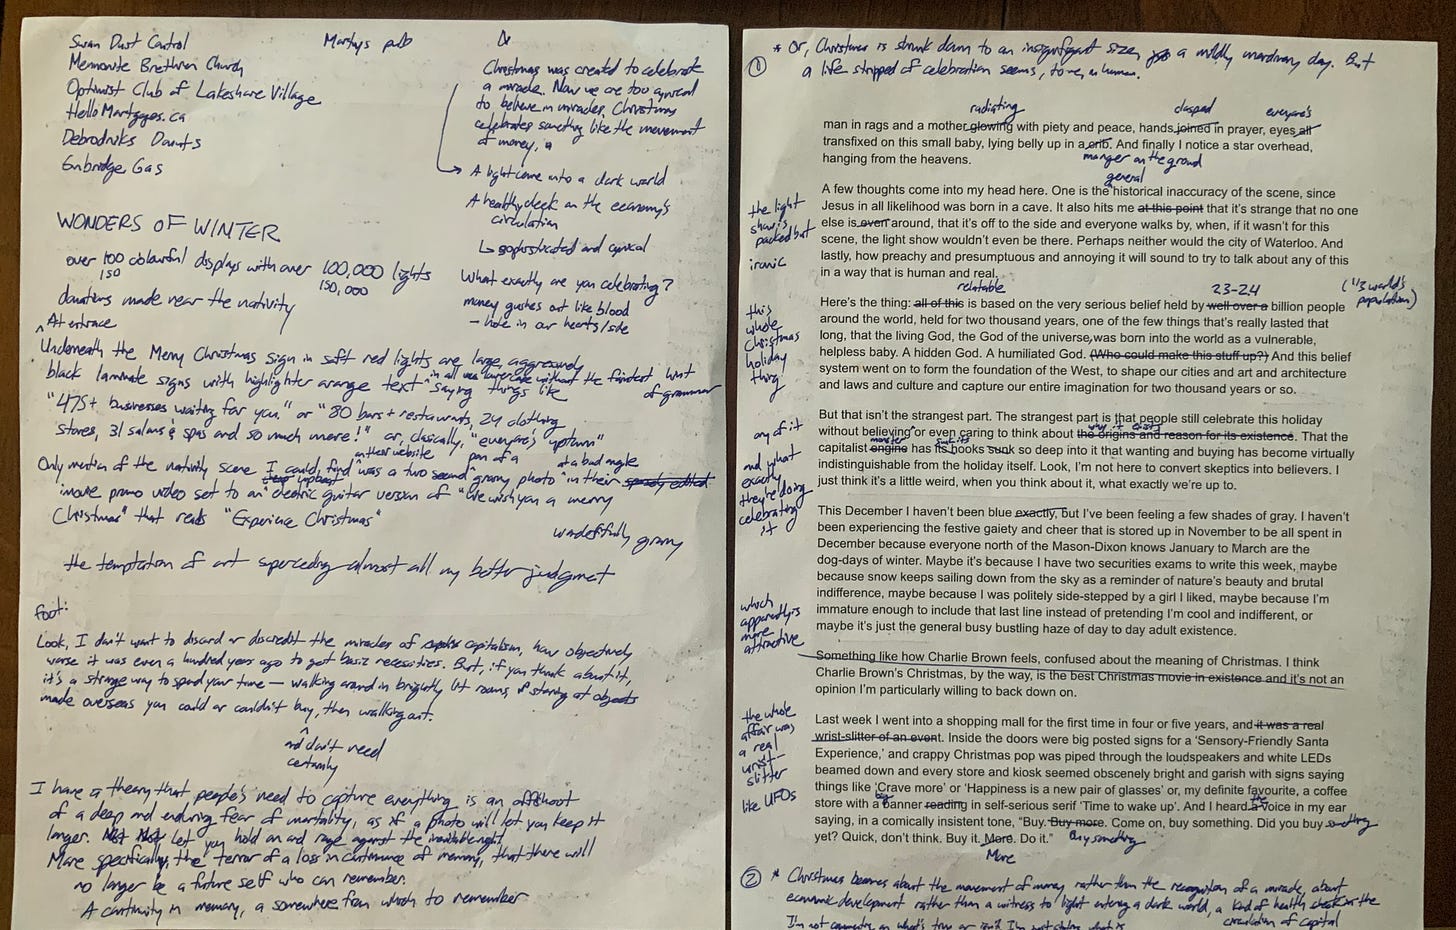 Swan Dust Control
Mennonite Brethren Church
Optimist Club of Lakeshore Village
HelloMortgages.ca
Debrodniks Donuts
Enbridge Gas
Martys pub
Christmas was created to celebrate
a miracle. Now we are too cynical
to believe in miracles. Christmas
celebrates something like the movement
of money, a
A light come into a dark world
A healthy cheek on the economy's
circulation
sophisticated and cynical
What exactly are you celebrating?
money gushes out like blood
- hole in our hearts/side
WONDERS OF WINTER
over 100 colourful displays with over 100,000 lights
150
150,000
donations made near the nativity
At entrance
Underneath the Merry Christmas sign in soft red lights are large, aggressively
black laminate signs with highlighter orange text in all lowercase without the faintest hint
saying things like
of grammar
"475+ businesses waiting for you." or "80 bars + restaurants, 24 clothing
stores, 31 salons & spas and so much more!" or, classically, "everyone's uptown"
on their website
part of a
at a bad angle
Only mention of the nativity scene I could find was a two second grainy photo in their speedy edited
imovie promo video set to an electric guitar version of "We wish you a merry
Christmas" that reads "Experience Christmas"
wonderfully grainy
the temptation of art superceding almost all my better judgment
foot:
Look, I don't want to discard or discredit the miracles of capitalism, how objectively
worse it was even a hundred years ago to get basic necessities. But, if you think about it,
it's a strange way to spend your time — walking around in brightly lit rooms, staring at objects
made overseas you could or couldn't buy, then walking out.
and don't need
certainly
I have a theory that people's need to capture everything is an offshoot
of a deep and enduring fear of mortality, as if a photo will let you keep it
longer. let you hold on and rage against the inevitable night
More specifically, the terror of a loss in continuance of memory, that there will
no longer be a future self who can remember.
A continuity in memory, a somewhere from which to remember
① * Or, Christmas is shrunk down to an insignificant size, a mildly unordinary day. But
a life stripped of celebration seems, to me, inhuman.
radiating
clasped
everyone's
man in rags and a mother glowing with piety and peace, hands joined in prayer, eyes all
transfixed on this small baby, lying belly up in a crib. And finally I notice a star overhead,
manger on the ground
hanging from the heavens.
general
A few thoughts come into my head here. One is the historical inaccuracy of the scene, since
Jesus in all likelihood was born in a cave. It also hits me at this point that it's strange that no one
else is even around, that it's off to the side and everyone walks by, when, if it wasn't for this
scene, the light show wouldn't even be there. Perhaps neither would the city of Waterloo. And
lastly, how preachy and presumptuous and annoying it will sound to try to talk about any of this
in a way that is human and real.
the light
show is
packed but
ironic
relatable
2.3-2.4
(1/3 world's
population)
Here's the thing: all of this is based on the very serious belief held by well over a billion people
around the world, held for two thousand years, one of the few things that's really lasted that
long, that the living God, the God of the universe, was born into the world as a vulnerable,
helpless baby. A hidden God. A humiliated God. (Who could make this stuff up?) And this belief
system went on to form the foundation of the West, to shape our cities and art and architecture
and laws and culture and capture our entire imagination for two thousand years or so.
this
whole
Christmas
holiday
thing
But that isn't the strangest part. The strangest part is that people still celebrate this holiday
without believing or even caring to think about the origins and reason for its existence. That the
why it exists
capitalist engine has its hooks sunk so deep into it that wanting and buying has become virtually
monster
sunk its
indistinguishable from the holiday itself. Look, I'm not here to convert skeptics into believers. I
just think it's a little weird, when you think about it, what exactly we're up to.
any of it
and what
exactly
they're doing
celebrating
it
This December I haven't been blue exactly, but I've been feeling a few shades of gray. I haven't
been experiencing the festive gaiety and cheer that is stored up in November to be all spent in
December because everyone north of the Mason-Dixon knows January to March are the
dog-days of winter. Maybe it's because I have two securities exams to write this week, maybe
because snow keeps sailing down from the sky as a reminder of nature's beauty and brutal
indifference, maybe because I was politely side-stepped by a girl I liked, maybe because I'm
immature enough to include that last line instead of pretending I'm cool and indifferent, or
maybe it's just the general busy bustling haze of day to day adult existence.
which
apparently is
more
attractive
Something like how Charlie Brown feels, confused about the meaning of Christmas. I think
Charlie Brown's Christmas, by the way, is the best Christmas movie in existence and it's not an
opinion I'm particularly willing to back down on.
Last week I went into a shopping mall for the first time in four or five years, and it was a real
wrist-slitter of an event. Inside the doors were big posted signs for a 'Sensory-Friendly Santa
Experience,' and crappy Christmas pop was piped through the loudspeakers and white LEDs
beamed down and every store and kiosk seemed obscenely bright and garish with signs saying
things like 'Crave more' or 'Happiness is a new pair of glasses' or, my definite favourite, a coffee
big
the
store with a banner reading in self-serious serif 'Time to wake up'. And I heard a voice in my ear
saying, in a comically insistent tone, "Buy. Buy more. Come on, buy something. Did you buy something
yet? Quick, don't think. Buy it. More. Do it."
Buy something
More
the whole
affair was
a real
wrist-
slitter
like UFOs
② * Christmas becomes about the movement of money rather than the recognition of a miracle, about
economic development rather than a witness to light entering a dark world, a kind of health check on the
circulation of capital